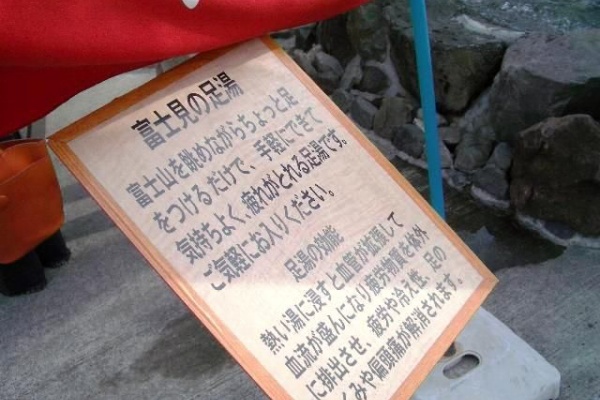 富士見の足湯
富士山を眺めながらちょっと足
をつけるだけで、手軽にできて
気持ちよく、疲れがとれる足湯です。
ご気軽にお入りください。
足湯の効能
熱い湯に浸すと血管が拡張して
血流が盛んになり疲労物質を体外
に排出させ、疲労や冷え性、足の
くみや偏頭痛が解消されます。